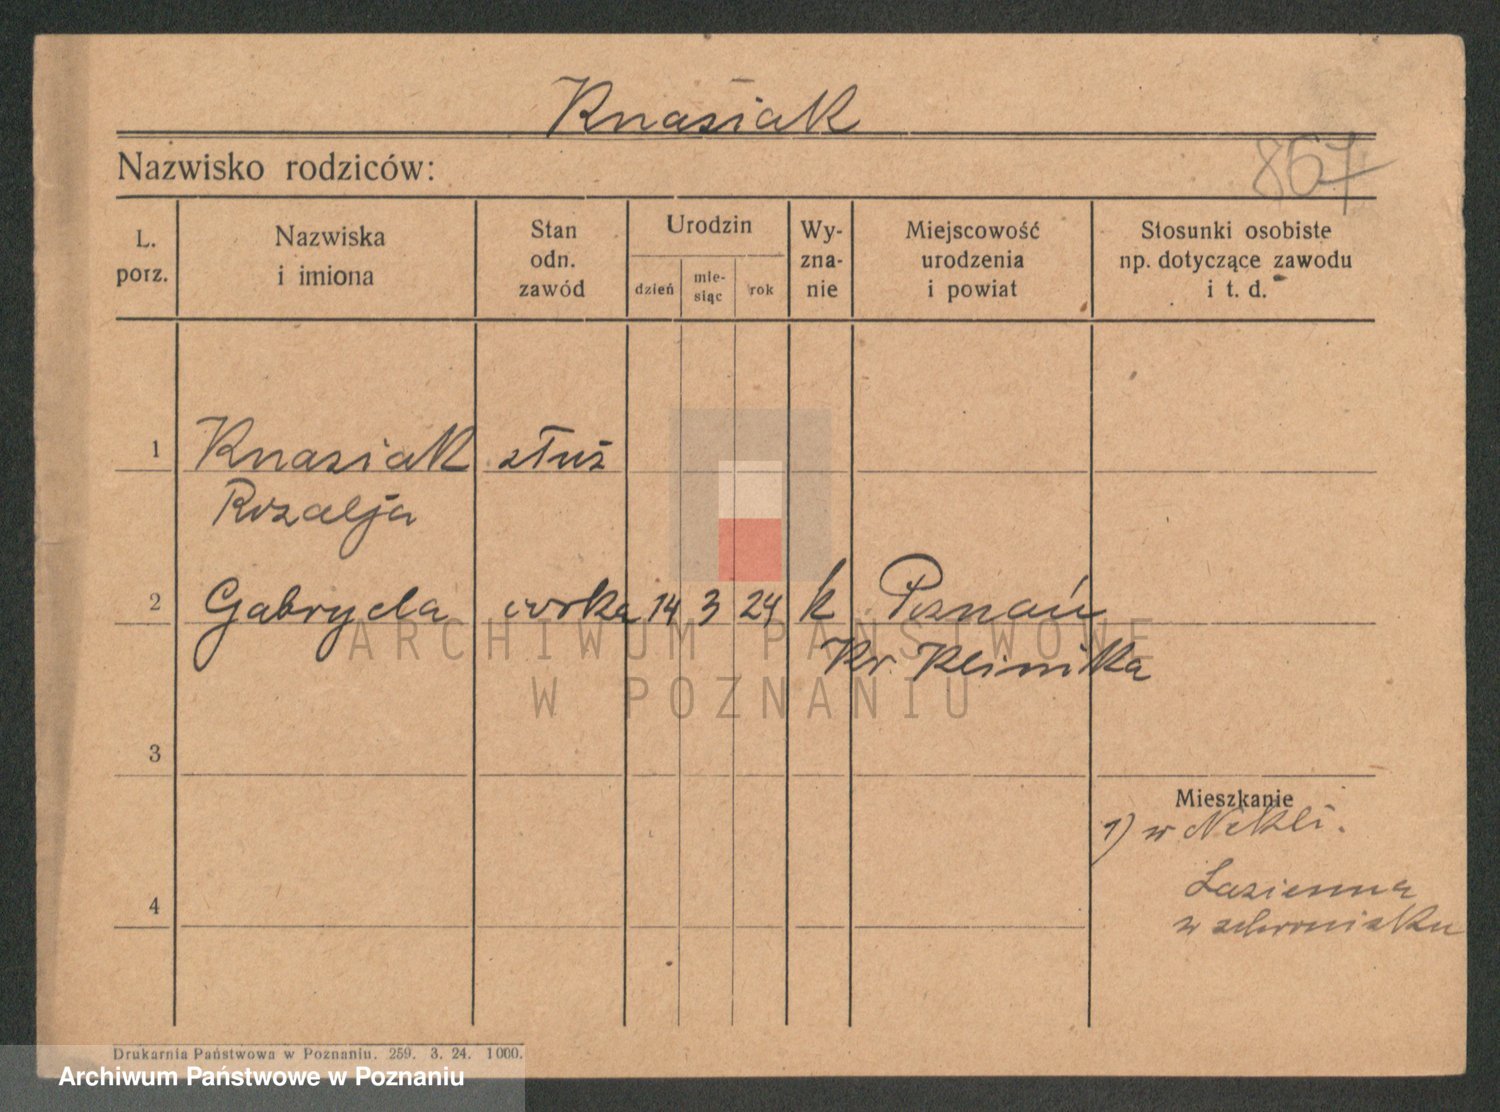 Knasiak
Nazwisko rodziców:
867
L. porz.
Nazwiska i imiona
Stan odn. zawód
Urodzin
dzień
mie-siąc
rok
Wy-zna-nie
Miejscowość urodzenia i powiat
Stosunki osobiste np. dotyczące zawodu i t. d.
1 Knasiak służ
Rozalja
2 Gabryela córka 14 3 24 k Poznań
Kr. Klinika
3
Mieszkanie
1) w Nekli.
4
Łazienna
w schronisku
ARCHIWUM PAŃSTWOWE
W POZNANIU
Drukarnia Państwowa w Poznaniu. 259. 3. 24. 1000.
Archiwum Państwowe w Poznaniu